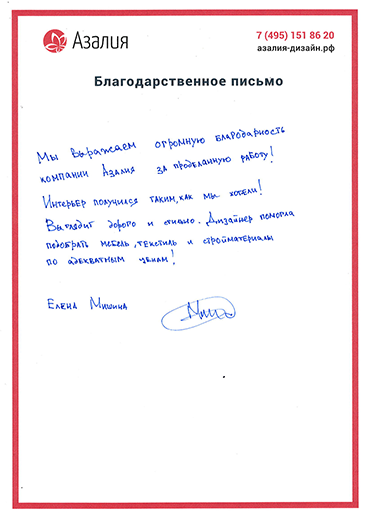 Азалия
7 (495) 151 86 20
азалия-дизайн.рф
Благодарственное письмо
Мы выражаем огромную благодарность
компании Азалия за проделанную работу!
Интерьер получился таким, как мы хотели!
Выглядит дорого и стильно. Дизайнер помогла
подобрать мебель, текстиль и стройматериалы
по адекватным ценам!
Елена Мишина